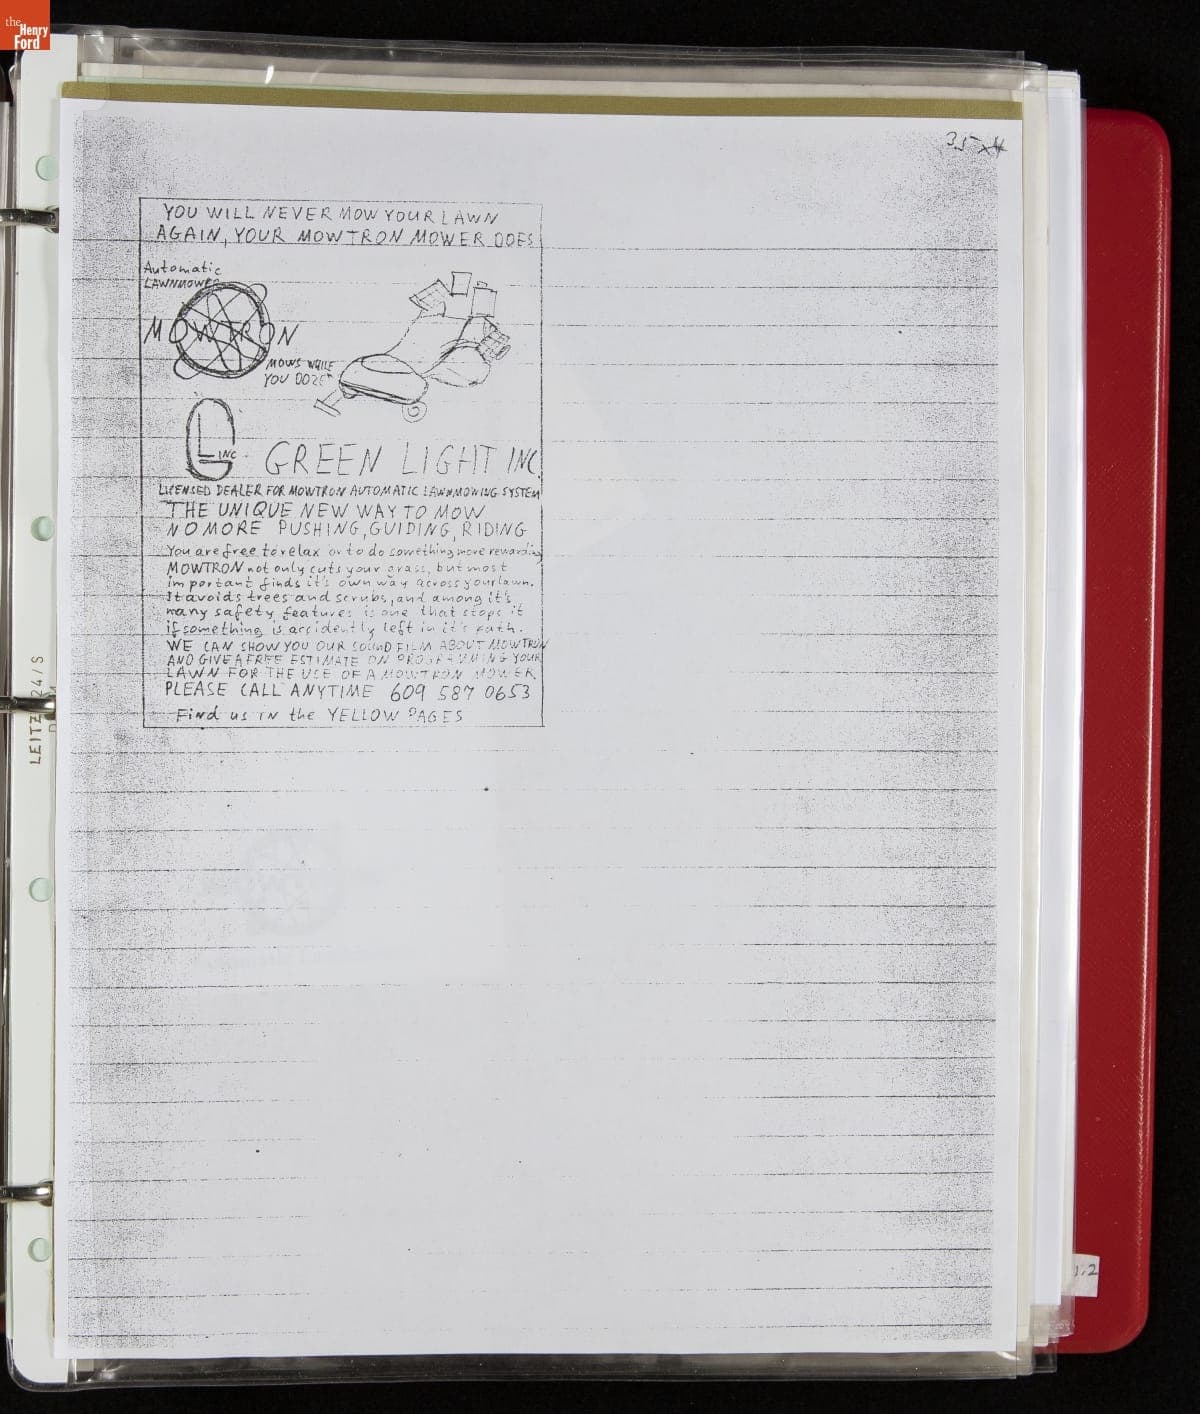 the
Henry
Ford
35 x4
YOU WILL NEVER MOW YOUR LAWN
AGAIN, YOUR MOWTRON MOWER DOES
Automatic
LAWNMOWER
MOWTRON
MOWS WHILE
YOU DOZE
GL INC.
GREEN LIGHT INC.
LICENSED DEALER FOR MOWTRON AUTOMATIC LAWNMOWING SYSTEM
THE UNIQUE NEW WAY TO MOW
NO MORE PUSHING, GUIDING, RIDING
You are free to relax or to do something more rewarding
MOWTRON not only cuts your grass, but most
important finds it's own way across your lawn.
It avoids trees and scrubs, and among it's
many safety features is one that stops it
if something is accidently left in it's path.
WE CAN SHOW YOU OUR SOUND FILM ABOUT MOWTRON
AND GIVE A FREE ESTIMATE ON PROGRAMMING YOUR
LAWN FOR THE USE OF A MOWTRON MOWER
PLEASE CALL ANYTIME 609 587 0653
Find us IN the YELLOW PAGES